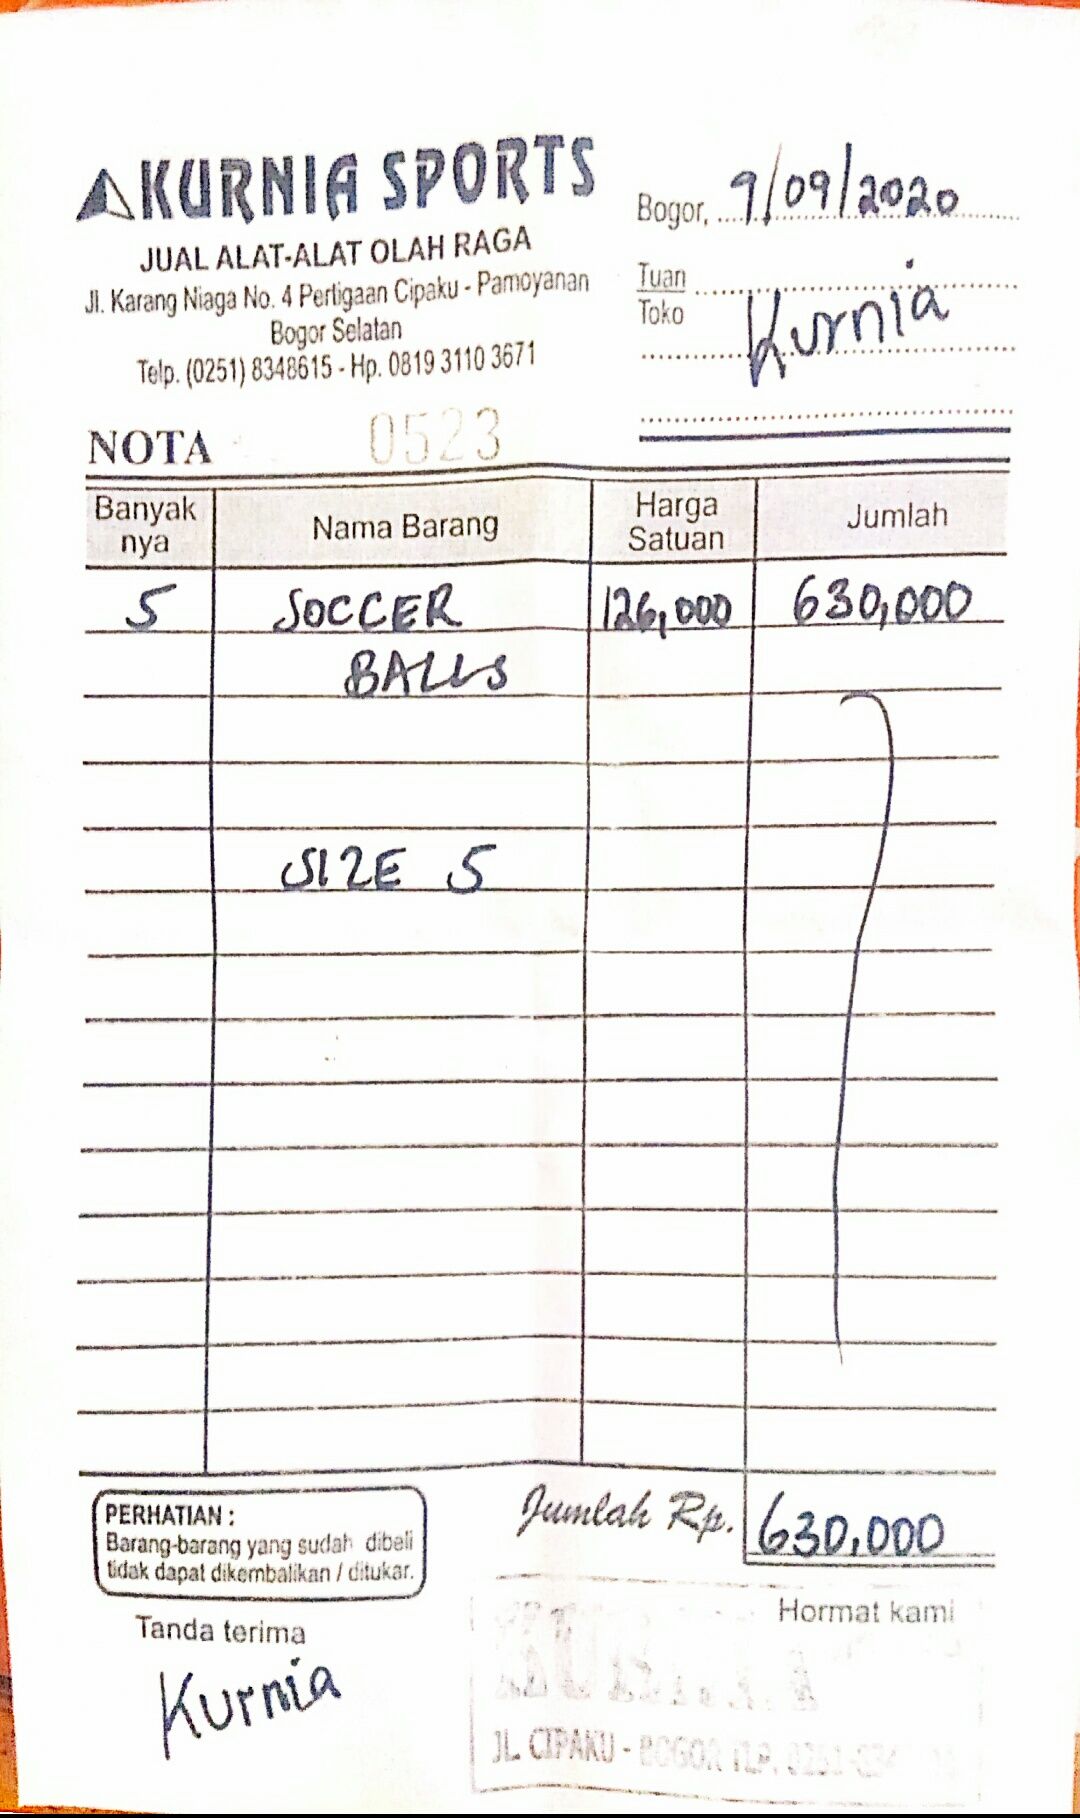 KURNIA SPORTS
JUAL ALAT-ALAT OLAH RAGA
Jl. Karang Niaga No. 4 Pertigaan Cipaku - Pamoyanan
Bogor Selatan
Telp. (0251) 8348615 - Hp. 0819 3110 3671
Bogor, 9/09/2020
Tuan
Toko
Kurnia
NOTA 0523
Banyak nya Nama Barang Harga Satuan Jumlah
5 SOCCER 126,000 630,000
BALLS
SIZE 5
Jumlah Rp. 630,000
PERHATIAN :
Barang-barang yang sudah dibeli
tidak dapat dikembalikan / ditukar.
Tanda terima
Kurnia
Hormat kami
JL. CIPAKU - BOGOR TLP. 0251